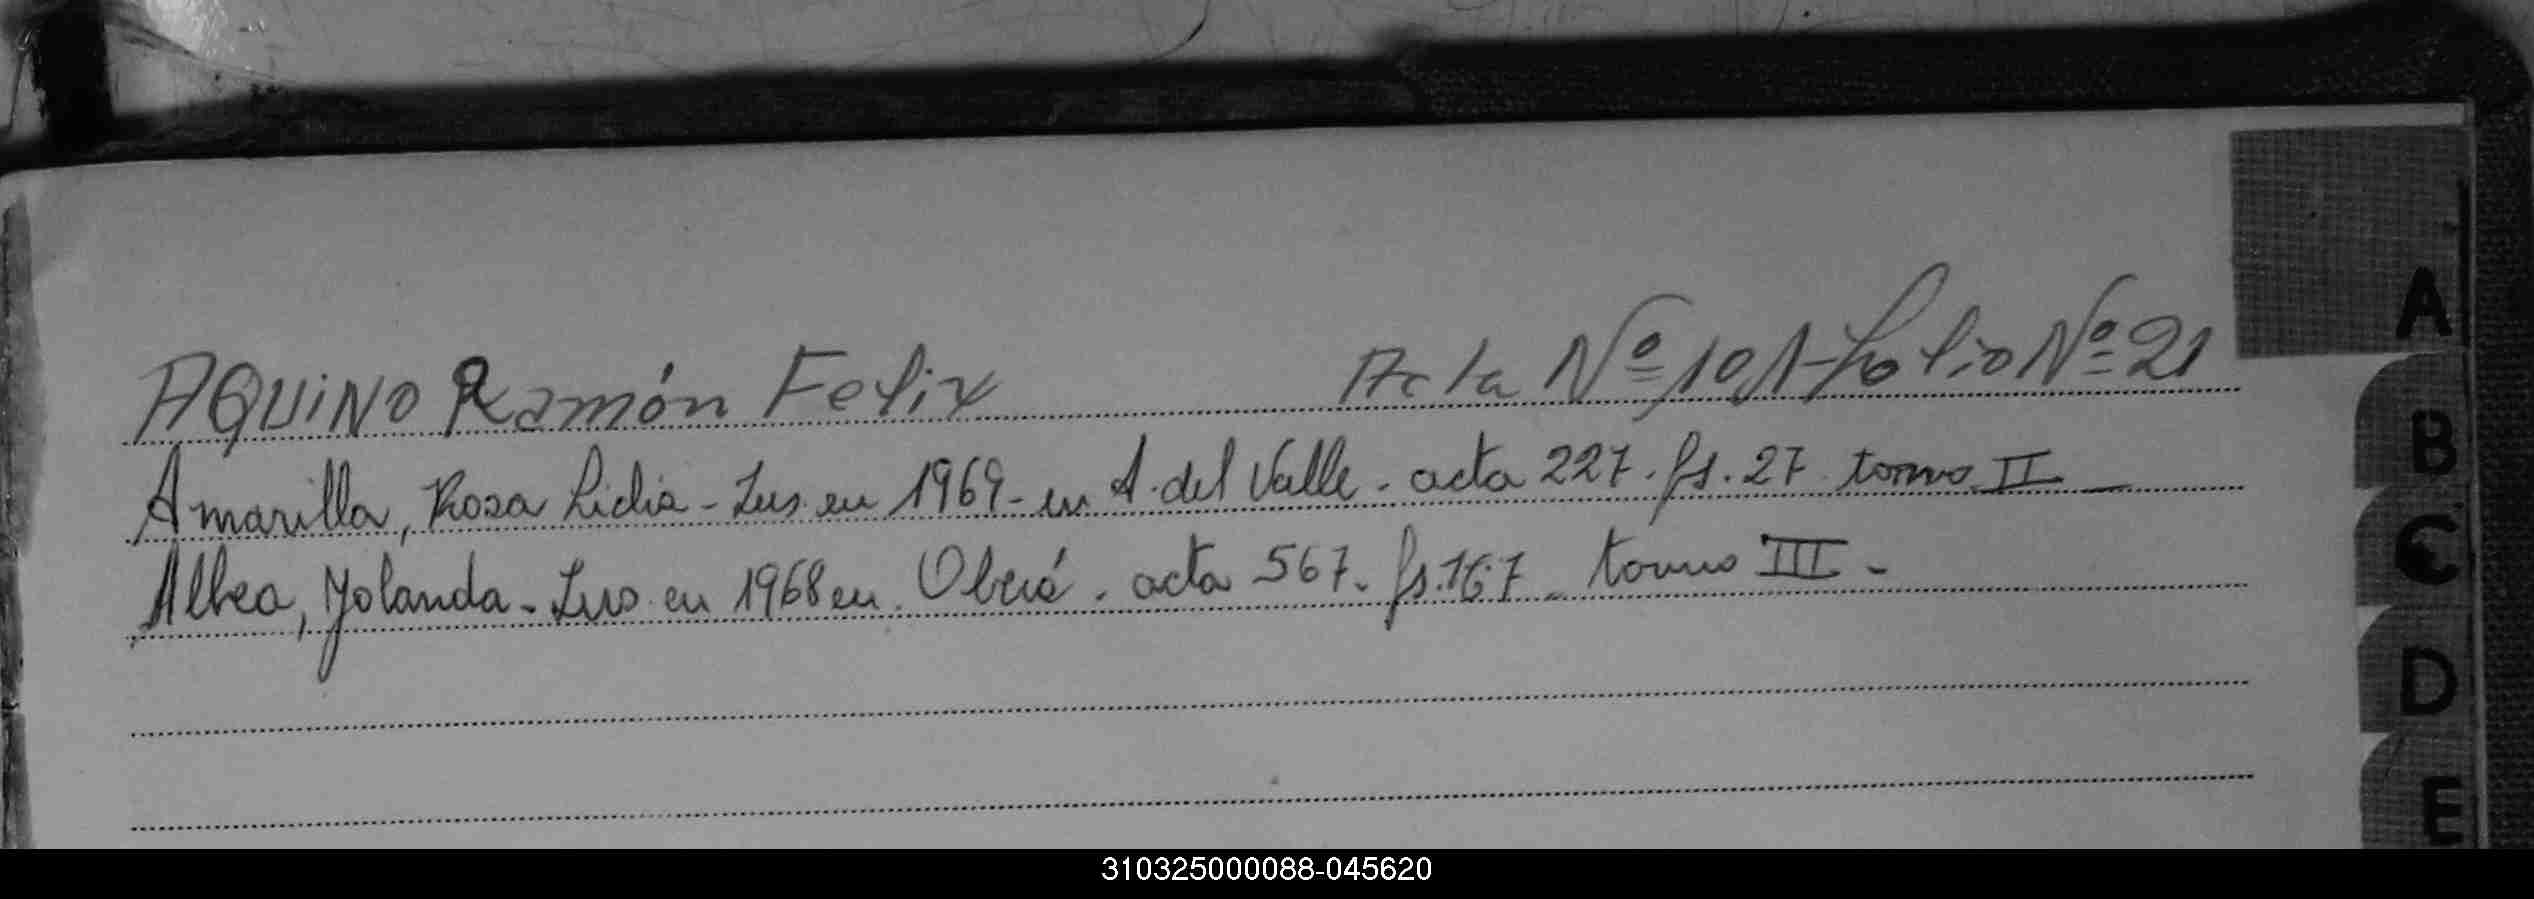 AQUINO Ramón Felix Acta Nº 101-folio Nº 21
A
Amarilla, Rosa Lidia - Ius. en 1969 - en A. del Valle. acta 227. fs. 27 tomo II
B
Albea, Yolanda - Ius. en 1968 en Oberá. acta 567. fs. 167 - tomo III -
C
D
E
310325000088-045620